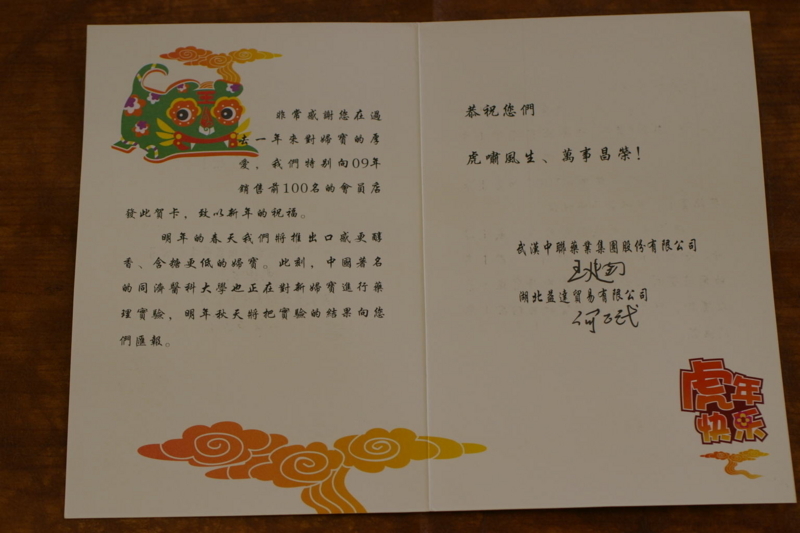 非常感謝您在過
去一年来對婦寶的厚
愛，我們特别向09年
銷售前100名的會員店
發此賀卡，致以新年的祝福。
明年的春天我們將推出口感更醇
香、含糖更低的婦寶。此刻，中國著名
的同濟醫科大學也正在對新婦寶進行藥
理實驗，明年秋天將把實驗的結果向您
們匯報。
恭祝您們
虎嘯風生、萬事昌榮！
武漢中聯藥業集團股份有限公司
湖北益達貿易有限公司
虎年
快乐